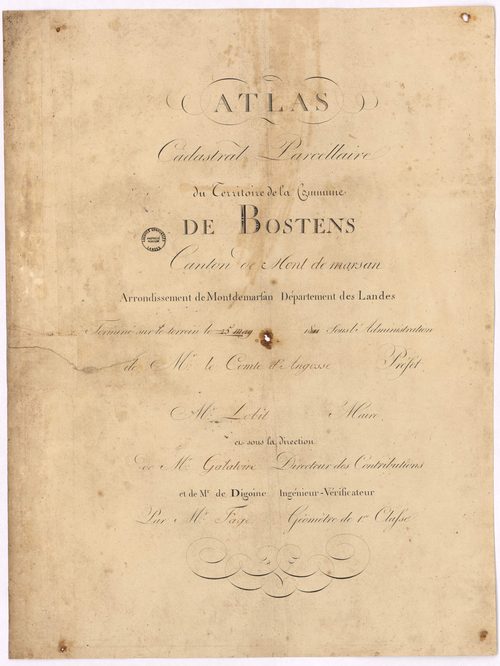 ATLAS
Cadastral Parcellaire
du Territoire de la Commune
DE BOSTENS
Canton de Mont de marsan
Arrondissement de Montdemarsan Département des Landes
Terminé sur le terrein le 25 may Sous l'Administration
de Mr. le Comte d'Angosse Préfet
Mr. Lobit Maire
et sous la direction
de Mr. Galatoire Directeur des Contributions
et de Mr. de Digoine Ingénieur-Vérificateur
Par Mr. Fage Géomètre de 1re Classe